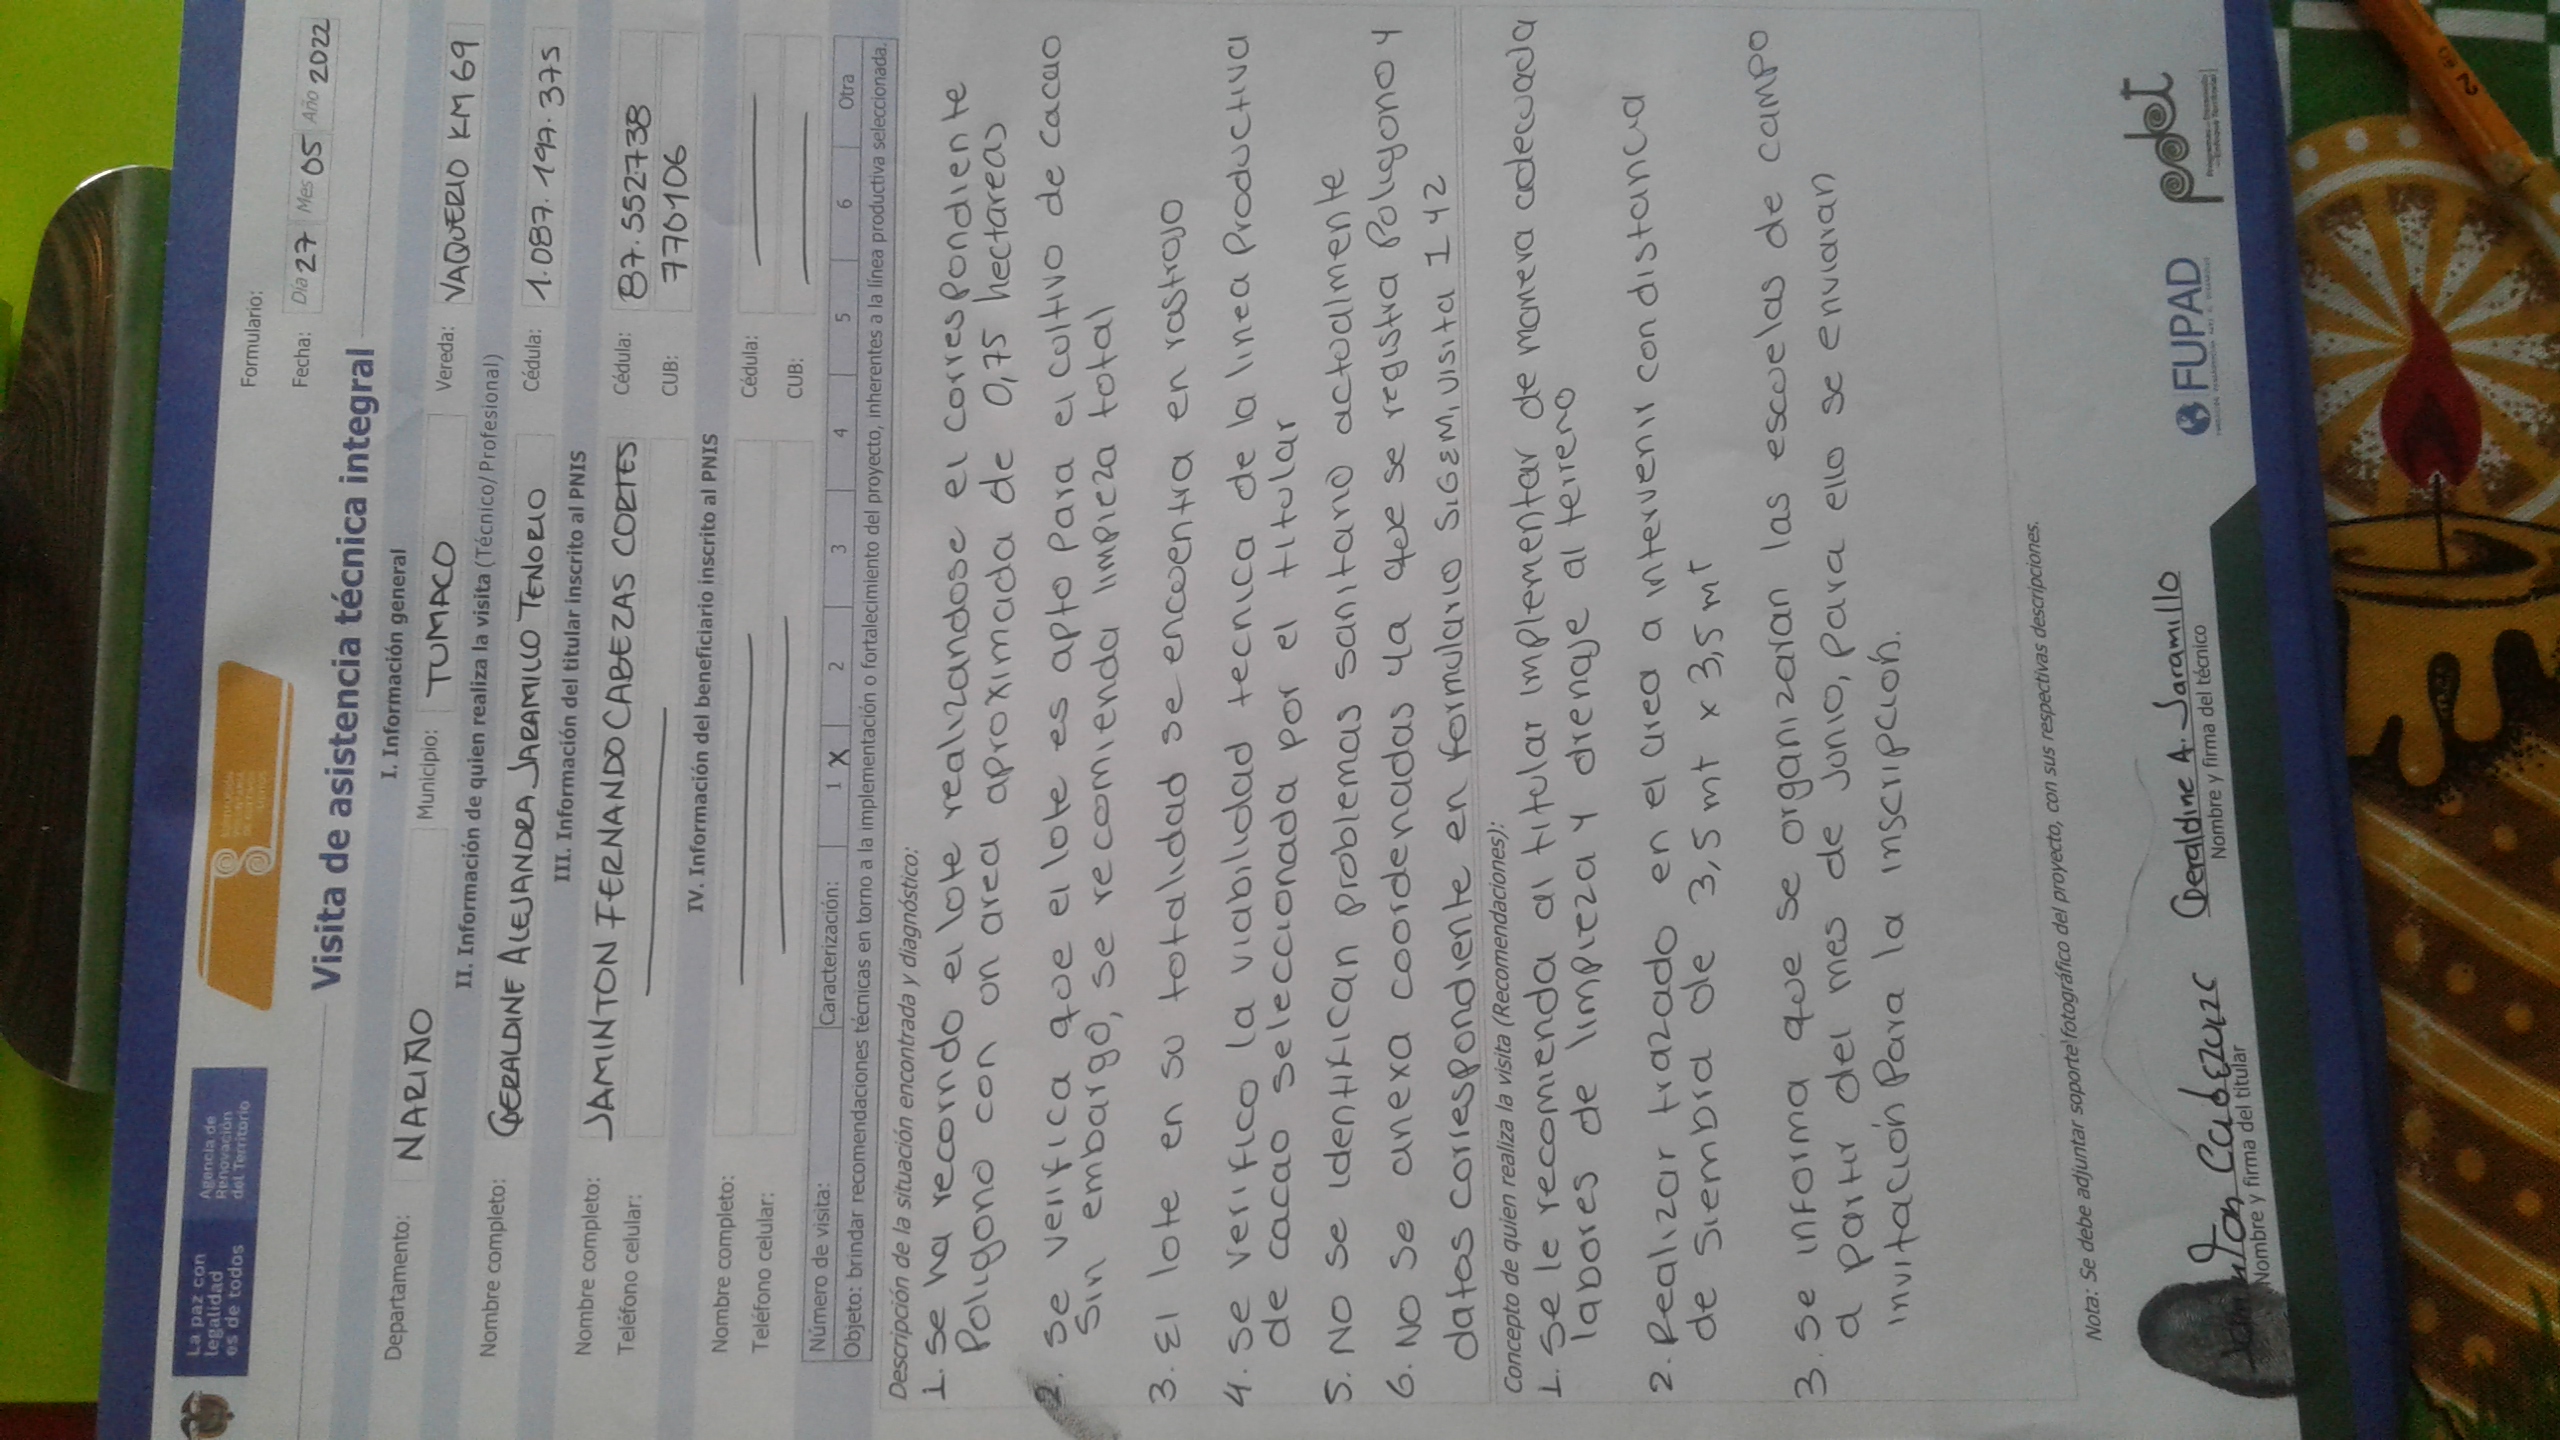 La paz con
legalidad
es de todos
Agencia de
Renovación
del Territorio
Formulario:
Fecha: Día 27 Mes 05 Año 2022
Visita de asistencia técnica integral
I. Información general
Departamento: NARIÑO Municipio: TUMACO Vereda: VAQUERIO KM 69
II. Información de quien realiza la visita (Técnico/ Profesional)
Nombre completo: GERALDINE ALEJANDRA JARAMILLO TENORIO Cédula: 1.087.197.375
III. Información del titular inscrito al PNIS
Nombre completo: JAMINTON FERNANDO CABEZAS CORTES Cédula: 87.552738
Teléfono celular: CUB: 770106
IV. Información del beneficiario inscrito al PNIS
Nombre completo: Cédula:
Teléfono celular: CUB:
Número de visita: Caracterización: 1 X 2 3 4 5 6 Otra
Objeto: brindar recomendaciones técnicas en torno a la implementación o fortalecimiento del proyecto, inherentes a la línea productiva seleccionada.
Descripción de la situación encontrada y diagnóstico:
1. Se ha recorrido el lote realizandose el correspondiente
Poligono con un area aproximada de 0,75 hectareas
2. Se verifica que el lote es apto para el cultivo de cacao
Sin embargo, se recomienda limpieza total
3. El lote en su totalidad se encuentra en rastrojo
4. Se verifico la viabilidad tecnica de la linea Productiva
de cacao seleccionada por el titular
5. No se identifican problemas sanitario actualmente
6. No se anexa coordenadas ya que se registra Poligono y
datos correspondiente en formulario SIGEMI, visita 1 y 2
Concepto de quien realiza la visita (Recomendaciones):
1. Se le recomienda al titular implementar de manera adecuada
labores de limpieza y drenaje al terreno
2. Realizar trazado en el area a intervenir con distancia
de siembra de 3,5 mt x 3,5 mt
3. Se informa que se organizaran las escuelas de campo
a partir del mes de Junio, para ello se enviaran
invitación Para la inscripción.
Nota: Se debe adjuntar soporte fotográfico del proyecto, con sus respectivas descripciones.
Jaminton Cabezas Geraldine A. Jaramillo
Nombre y firma del titular Nombre y firma del técnico
FUPAD
pdet